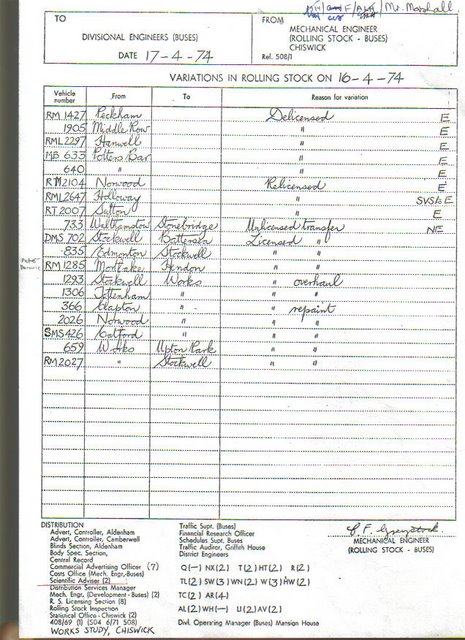 Mr. Marshall
TO
DIVISIONAL ENGINEERS (BUSES)
DATE 17-4-74
FROM
MECHANICAL ENGINEER
(ROLLING STOCK - BUSES)
CHISWICK
Ref. 508/1
VARIATIONS IN ROLLING STOCK ON 16-4-74
Vehicle number From To Reason for variation
RM 1427 Peckham Delicensed E
1905 Middle Row " E
RML 2297 Hanwell " E
MB 633 Potters Bar " E
640 " " E
RM 2104 Norwood Relicensed E
RML 2647 Holloway " SVS/E
RT 2007 Sutton " E
733 Walthamstow Stonebridge Unlicensed transfer NE
DMS 702 Stockwell Battersea Licensed "
835 Edmonton Stockwell " "
RM 1285 Mortlake Hendon " "
1293 Stockwell Works " overhaul
1306 Tottenham " " "
366 Clapton " " repaint
2026 Norwood " " "
SMS 426 Catford " " "
659 Works Upton Park " "
RM 2027 " Stockwell " "
DISTRIBUTION
Advert, Controller, Aldenham
Advert, Controller, Camberwell
Blinds Section, Aldenham
Body Spec. Section,
Central Record
Commercial Advertising Officer (7)
Costs Office (Mech. Engr, Buses)
Scientific Adviser (2)
Distribution Services Manager
Mech. Engr, (Development - Buses) (2)
R. S. Licensing Section (8)
Rolling Stock Inspection
Statistical Office - Chiswick (2)
408/69 (1) (504 6/71 508)
WORKS STUDY, CHISWICK
Traffic Supt. (Buses)
Financial Research Officer
Schedules Supt. Buses
Traffic Auditor, Griffith House
District Engineers
Q(—) NX(2) T(2) HT(2) R(2)
TL(2) SW(3) WN(2) W(3) AW(2)
TC(2) AR(4)
AL(2) WH(—) U(2) AV(2)
Divl. Operating Manager (Buses) Mansion House
MECHANICAL ENGINEER
(ROLLING STOCK - BUSES)